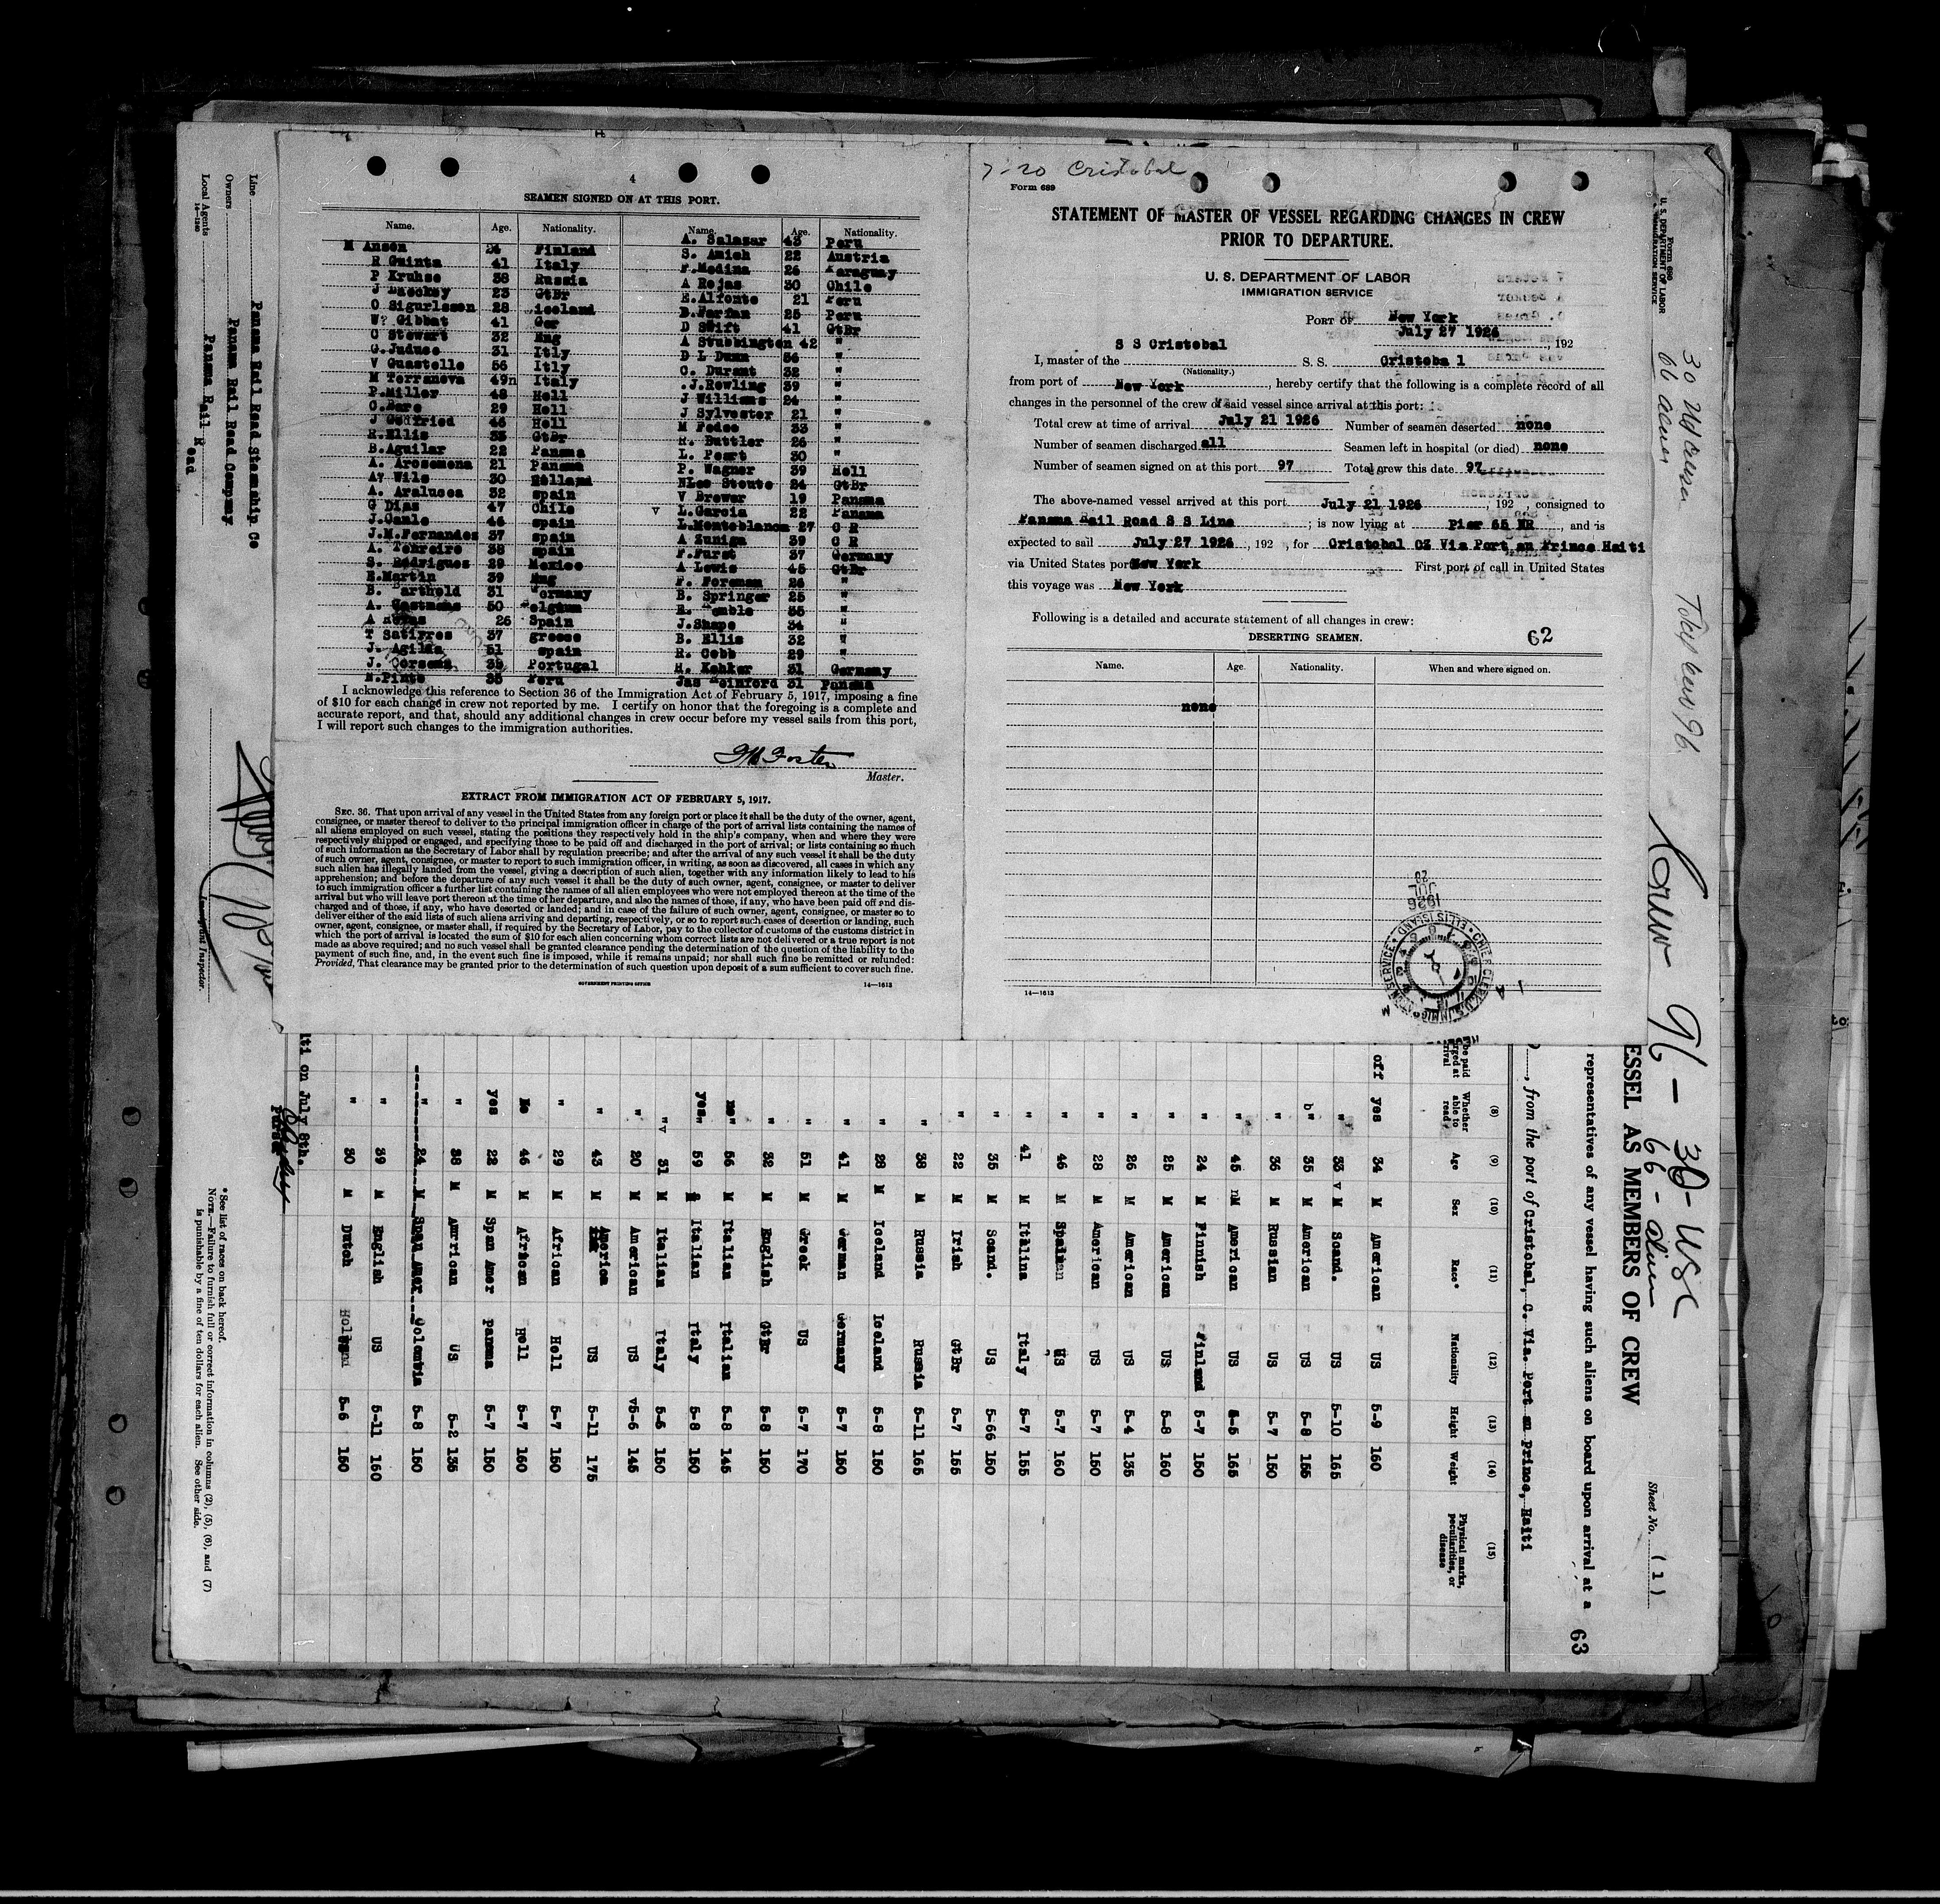 4
SEAMEN SIGNED ON AT THIS PORT.
Name. Age. Nationality.
M Anson 24 Finland
R Guinta 41 Italy
P Kruhse 38 Russia
J 23 GtBr
O Sigurlssen 28 iceland
W? Gibbat 41 Ger
C Stewart 32 Eng
G.Juduce 31 Itly
V Guastelle 56 Itly
M Terranova 49n Italy
P.Miller 48 Holl
C.Bare 29 Holl
J Godfried 46 Holl
R.Ellis 33 GtBr
B.Aguilar 22 Panama
A. Arosemena 21 Panama
AV Wils 30 Holland
A. Araluces 32 spain
G Dias 47 Chile
J.Canle 46 spain
J.M.Fernandes 37 spain
A. Tenreiro 38 spain
S. Rodrigues 29 Mexico
E.Martin 39 Eng
B. arthold 31 ermany
A. 50 elgium
A 26 Spain
T Satiyres 37 greece
J. Agilda 51 spain
J. 35 Portugal
M.Pinto 35 Peru
Name. Age. Nationality.
A. Salazar 43 Peru
S. Amich 22 Austria
F.Medina 26 araguay
A Rojas 30 Chile
E.Alfonte 21 Peru
D.Farfan 25 Peru
D Swift 41 GtBr
A Stubbington 42 "
D L Dunn 56 "
C. Durant 32 "
.J.Rowling 39 "
J Williams 24 "
J Sylvester 21 "
M Fodee 33 "
H. Buttler 26 "
L. Peart 30 "
P. Wagner 39 Holl
NLee Stoute 24 GtBr
V Brewer 19 Panama
v L.Garcia 22 Panama
L.Monteblanco 27 C R
A Zuniga 39 C R
F.Furst 37 Germany
A Lewis 45 GtBr
F. Foreman 26 "
B. Springer 25 "
R. emble 35 "
J.Shape 34 "
B. Ellis 32 "
R. Cobb 29 "
H. Kohker 31 Germany
Jas einford 31 Panama
I acknowledge this reference to Section 36 of the Immigration Act of February 5, 1917, imposing a fine
of $10 for each change in crew not reported by me. I certify on honor that the foregoing is a complete and
accurate report, and that, should any additional changes in crew occur before my vessel sails from this port,
I will report such changes to the immigration authorities.
Foster
Master.
EXTRACT FROM IMMIGRATION ACT OF FEBRUARY 5, 1917.
SEC. 36. That upon arrival of any vessel in the United States from any foreign port or place it shall be the duty of the owner, agent,
consignee, or master thereof to deliver to the principal immigration officer in charge of the port of arrival lists containing the names of
all aliens employed on such vessel, stating the positions they respectively hold in the ship's company, when and where they were
respectively shipped or engaged, and specifying those to be paid off and discharged in the port of arrival; or lists containing so much
of such information as the Secretary of Labor shall by regulation prescribe; and after the arrival of any such vessel it shall be the duty
of such owner, agent, consignee, or master to report to such immigration officer, in writing, as soon as discovered, all cases in which any
such alien has illegally landed from the vessel, giving a description of such alien, together with any information likely to lead to his
apprehension; and before the departure of any such vessel it shall be the duty of such owner, agent, consignee, or master to deliver
to such immigration officer a further list containing the names of all alien employees who were not employed thereon at the time of the
arrival but who will leave port thereon at the time of her departure, and also the names of those, if any, who have been paid off and dis-
charged and of those, if any, who have deserted or landed; and in case of the failure of such owner, agent, consignee, or master so to
deliver either of the said lists of such aliens arriving and departing, respectively, or so to report such cases of desertion or landing, such
owner, agent, consignee, or master shall, if required by the Secretary of Labor, pay to the collector of customs of the customs district in
which the port of arrival is located the sum of $10 for each alien concerning whom correct lists are not delivered or a true report is not
made as above required; and no such vessel shall be granted clearance pending the determination of the question of the liability to the
payment of such fine, and, in the event such fine is imposed, while it remains unpaid; nor shall such fine be remitted or refunded:
Provided, That clearance may be granted prior to the determination of such question upon deposit of a sum sufficient to cover such fine.
GOVERNMENT PRINTING OFFICE 14—1613
7-20 Cristobal
Form 689
STATEMENT OF MASTER OF VESSEL REGARDING CHANGES IN CREW
PRIOR TO DEPARTURE.
U. S. DEPARTMENT OF LABOR
IMMIGRATION SERVICE
PORT OF New York
July 27 1926, 192
I, master of the S S Cristobal S. S. Cristoba l
(Nationality.)
from port of New York, hereby certify that the following is a complete record of all
changes in the personnel of the crew of said vessel since arrival at this port:
Total crew at time of arrival July 21 1926 Number of seamen deserted none
Number of seamen discharged all Seamen left in hospital (or died) none
Number of seamen signed on at this port 97 Total crew this date 97
The above-named vessel arrived at this port July 21 1926, 192 , consigned to
Panama Rail Road S S Line; is now lying at Pier 65 NR, and is
expected to sail July 27 1926, 192 , for Cristobal CZ Via Port au Prince Haiti
via United States port New York First port of call in United States
this voyage was New York
Following is a detailed and accurate statement of all changes in crew:
DESERTING SEAMEN. 62
Name. Age. Nationality. When and where signed on.
none
14—1613
1926 JUL 28
CHIEF CLERK U.S. IMMIGRATION SERVICE ELLIS ISLAND
Form 680
U. S. DEPARTMENT OF LABOR
IMMIGRATION SERVICE
30 US crew
66 alien
Total crew 96
Crew 96 - 30 - USC
66 - alien
Sheet No. (1)
ESSEL AS MEMBERS OF CREW
representatives of any vessel having such aliens on board upon arrival at a
63
, from the port of Cristobal, C. Via. Port au Prince, Haiti
(8) (9) (10) (11) (12) (13) (14) (15)
Whether able to read Age Sex Race* Nationality Height Weight Physical marks, peculiarities, or disease
off yes 34 M American US 5-9 160
" 33 v M Scand. US 5-10 165
b " 35 M American US 5-8 155
" 36 M Russian US 5-7 150
" 45 nM American US 5-5 165
" 24 M Finnish Finland 5-7 150
" 25 M American US 5-8 160
" 26 M American US 5-4 135
" 28 M American US 5-7 150
" 46 M US 5-7 160
" 41 M Italina Italy 5-7 155
" 35 M Scand. US 5-66 150
" 22 M Irish GtBr 5-7 155
" 38 M Russia Russia 5-11 165
" 28 M Iceland Iceland 5-8 150
" 41 M German Germany 5-7 150
" 51 M Greek US 5-7 170
" 32 M English GtBr 5-8 150
no" 56 M Italian Italian 5-8 145
yes" 59 M Italian Italy 5-8 150
"v 31 M Italian Italy 5-6 150
" 20 M American US v5-6 145
" 43 M America US 5-11 175
" 29 M African Holl 5-7 150
No 46 M African Holl 5-7 160
yes 22 M Span Amer panama 5-7 150
" 38 M American US 5-2 135
" 24 M Span Amer Colombia 5-8 150
" 39 M English US 5-11 160
" 30 M Dutch 5-6 150
iti on July 8th.
Purser
* See list of races on back hereof.
NOTE.—Failure to furnish full or correct information in columns (2), (5), (6), and (7)
is punishable by a fine of ten dollars for each alien. See other side.
Line Panama Rail Road Steamship Co
Owners Panama Rail Road Company
Local Agents Panama Rail R oad
14—1240
Immigrant Inspector.